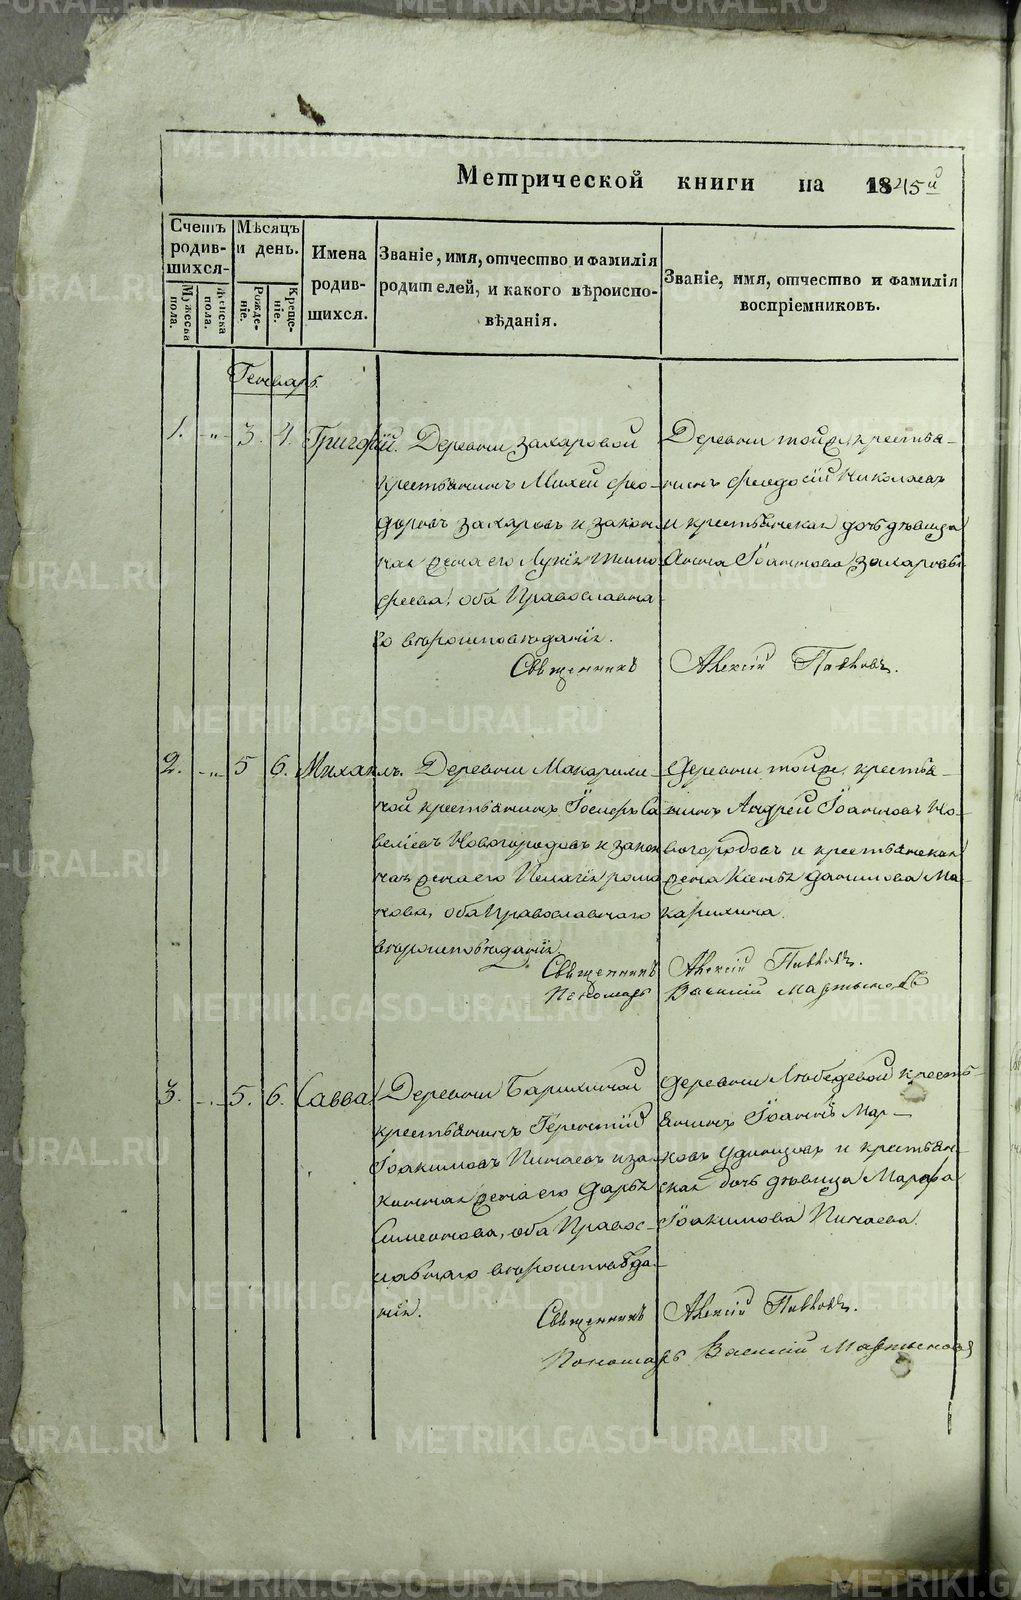 METRIKI.GASO-URAL.RU
Метрической книги на 1845й
Счетъ родив-шихся-
Мужеска пола.
Женска пола.
Мѣсяцъ и день.
Рожде-ніе.
Креще-ніе.
Имена родив-шихся.
Званіе, имя, отчество и фамилія родителей, и какого вѣроиспо-вѣданія.
Званіе, имя, отчество и фамилія воспріемниковъ.
Генварь.
1. „ 3. 4. Григорій.
Деревни Захаровой
крестьянинъ Михей Фео-
доровъ Захаровъ и закон
ная жена его
феева, оба Православна-
го вѣроисповѣданія.
Деревни тойже, крестья-
нинъ Феодосій Николаевъ
и крестьянская дочь дѣвица
Анна Іоаннова Захаровы
Священникъ Алексій
2. „ 5 6. Михаилъ.
Деревни Макарихи-
ной крестьянинъ Іосифъ Са
веліевъ Новогородовъ и закон
ная жена его Пелагія Рома
нова, оба Православнаго
вѣроисповѣданія.
Деревни тойже, крестья-
нинъ Андрей Іоанновъ Но-
вогородовъ и крестьянская
жена Ксенья Данилова Ма-
карихина.
Священникъ Алексій
Пономарь Василій Мартыновъ
3. „ 5. 6. Савва
Деревни Барихиной
крестьянинъ Терентій
Іоакимовъ Пинаевъ и за
конная жена его Дарья
Симеонова, оба Правос-
лавнаго вѣроисповѣда-
нія.
Деревни Лебедевой кресть-
янинъ Іоаннъ Мар-
ковъ Удинцовъ и крестьян-
ская дочь дѣвица Марфа
Іоакимова Пинаева.
Священникъ Алексій
Пономарь Василій Мартыновъ